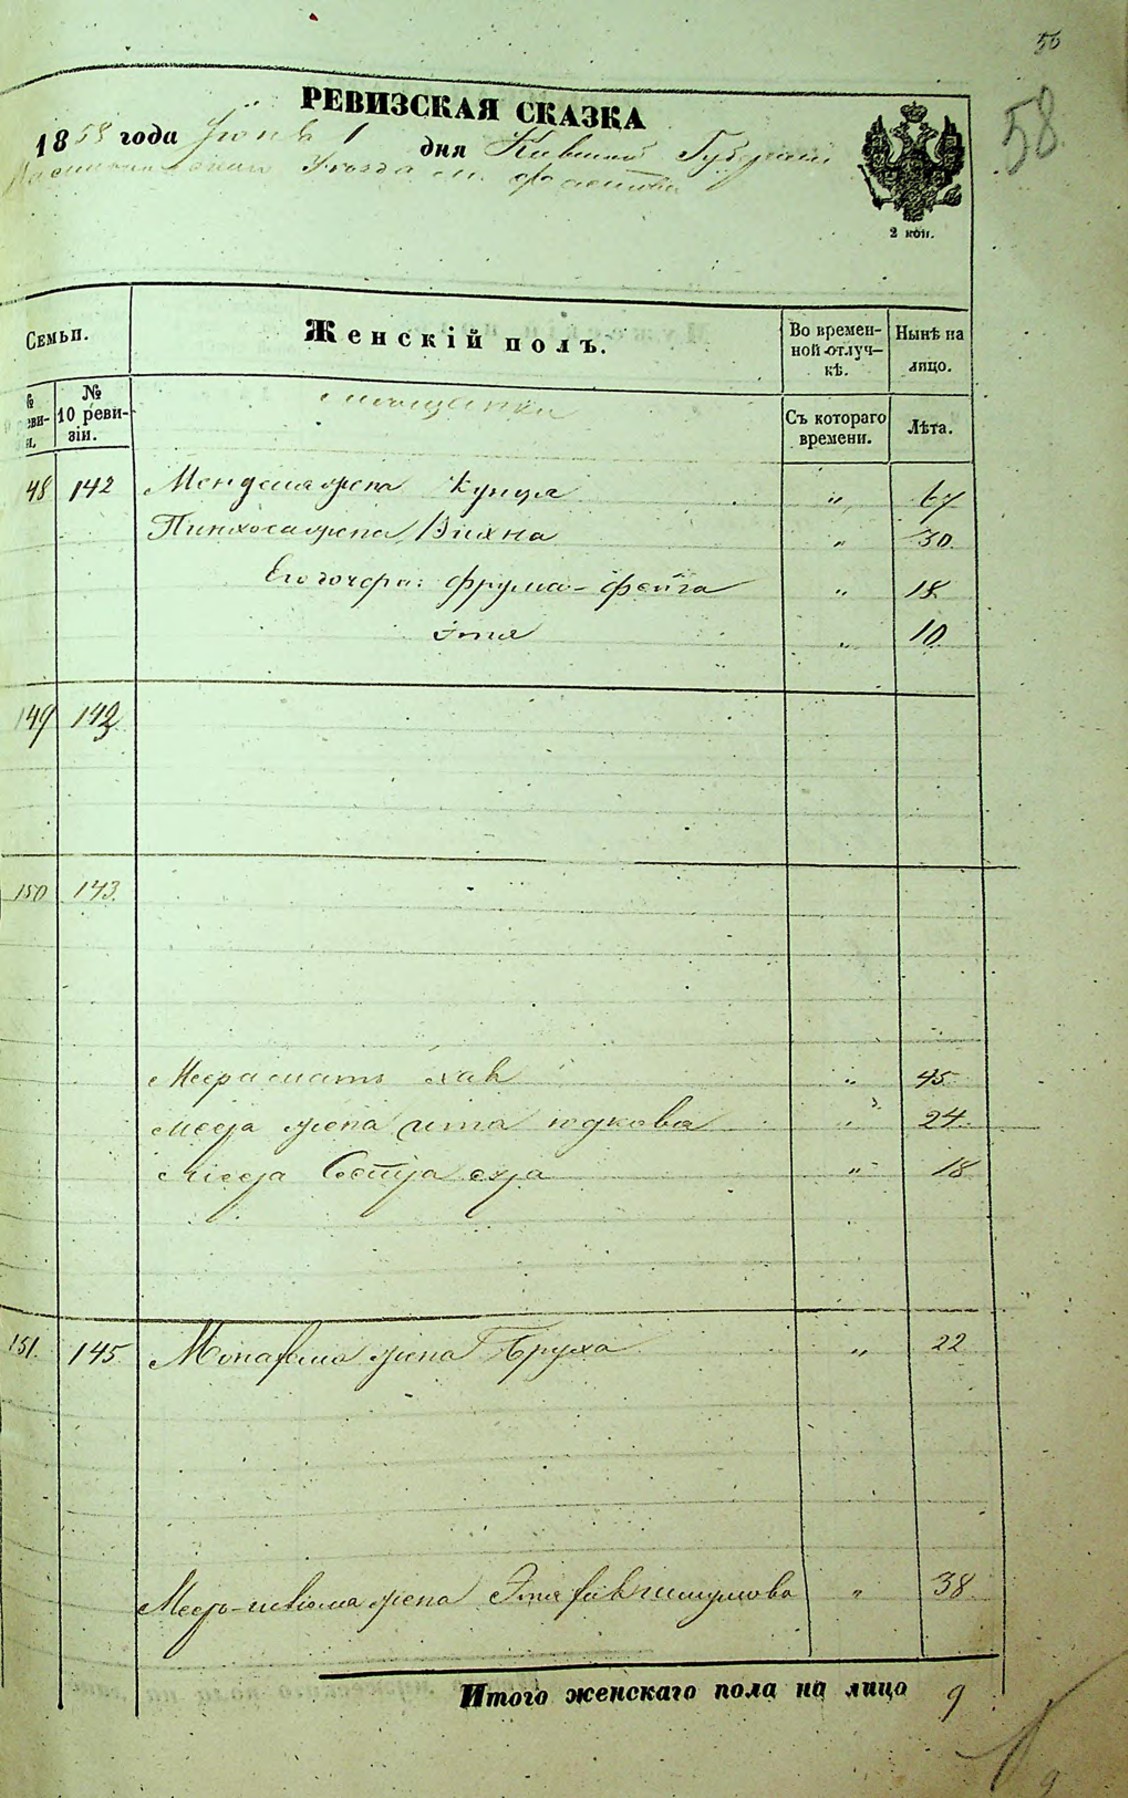 56
58
РЕВИЗСКАЯ СКАЗКА
1858 года Іюня 1 дня Кивской Губерніи
Уѣзда м. Фастова
2 коп.
Семьи.
Женскій полъ.
Во времен-
ной отлуч-
кѣ.
Нынѣ на
лицо.
№
реви-
зіи.
№
10 реви-
зіи.
мѣщанки
Съ котораго
времени.
Лѣта.
48 142 Менделя жена Куция " 67
Пинхоса жена Вихна " 30.
Его дочери: Фрума-Фейга " 18
Этя " 10.
149 142
150 143.
мать Хая " 45
жена Юдкова " 24.
Сестра " 18
151. 145 жена Бруха " 22
жена Этя " 38
Итого женскаго пола на лицо 9
9